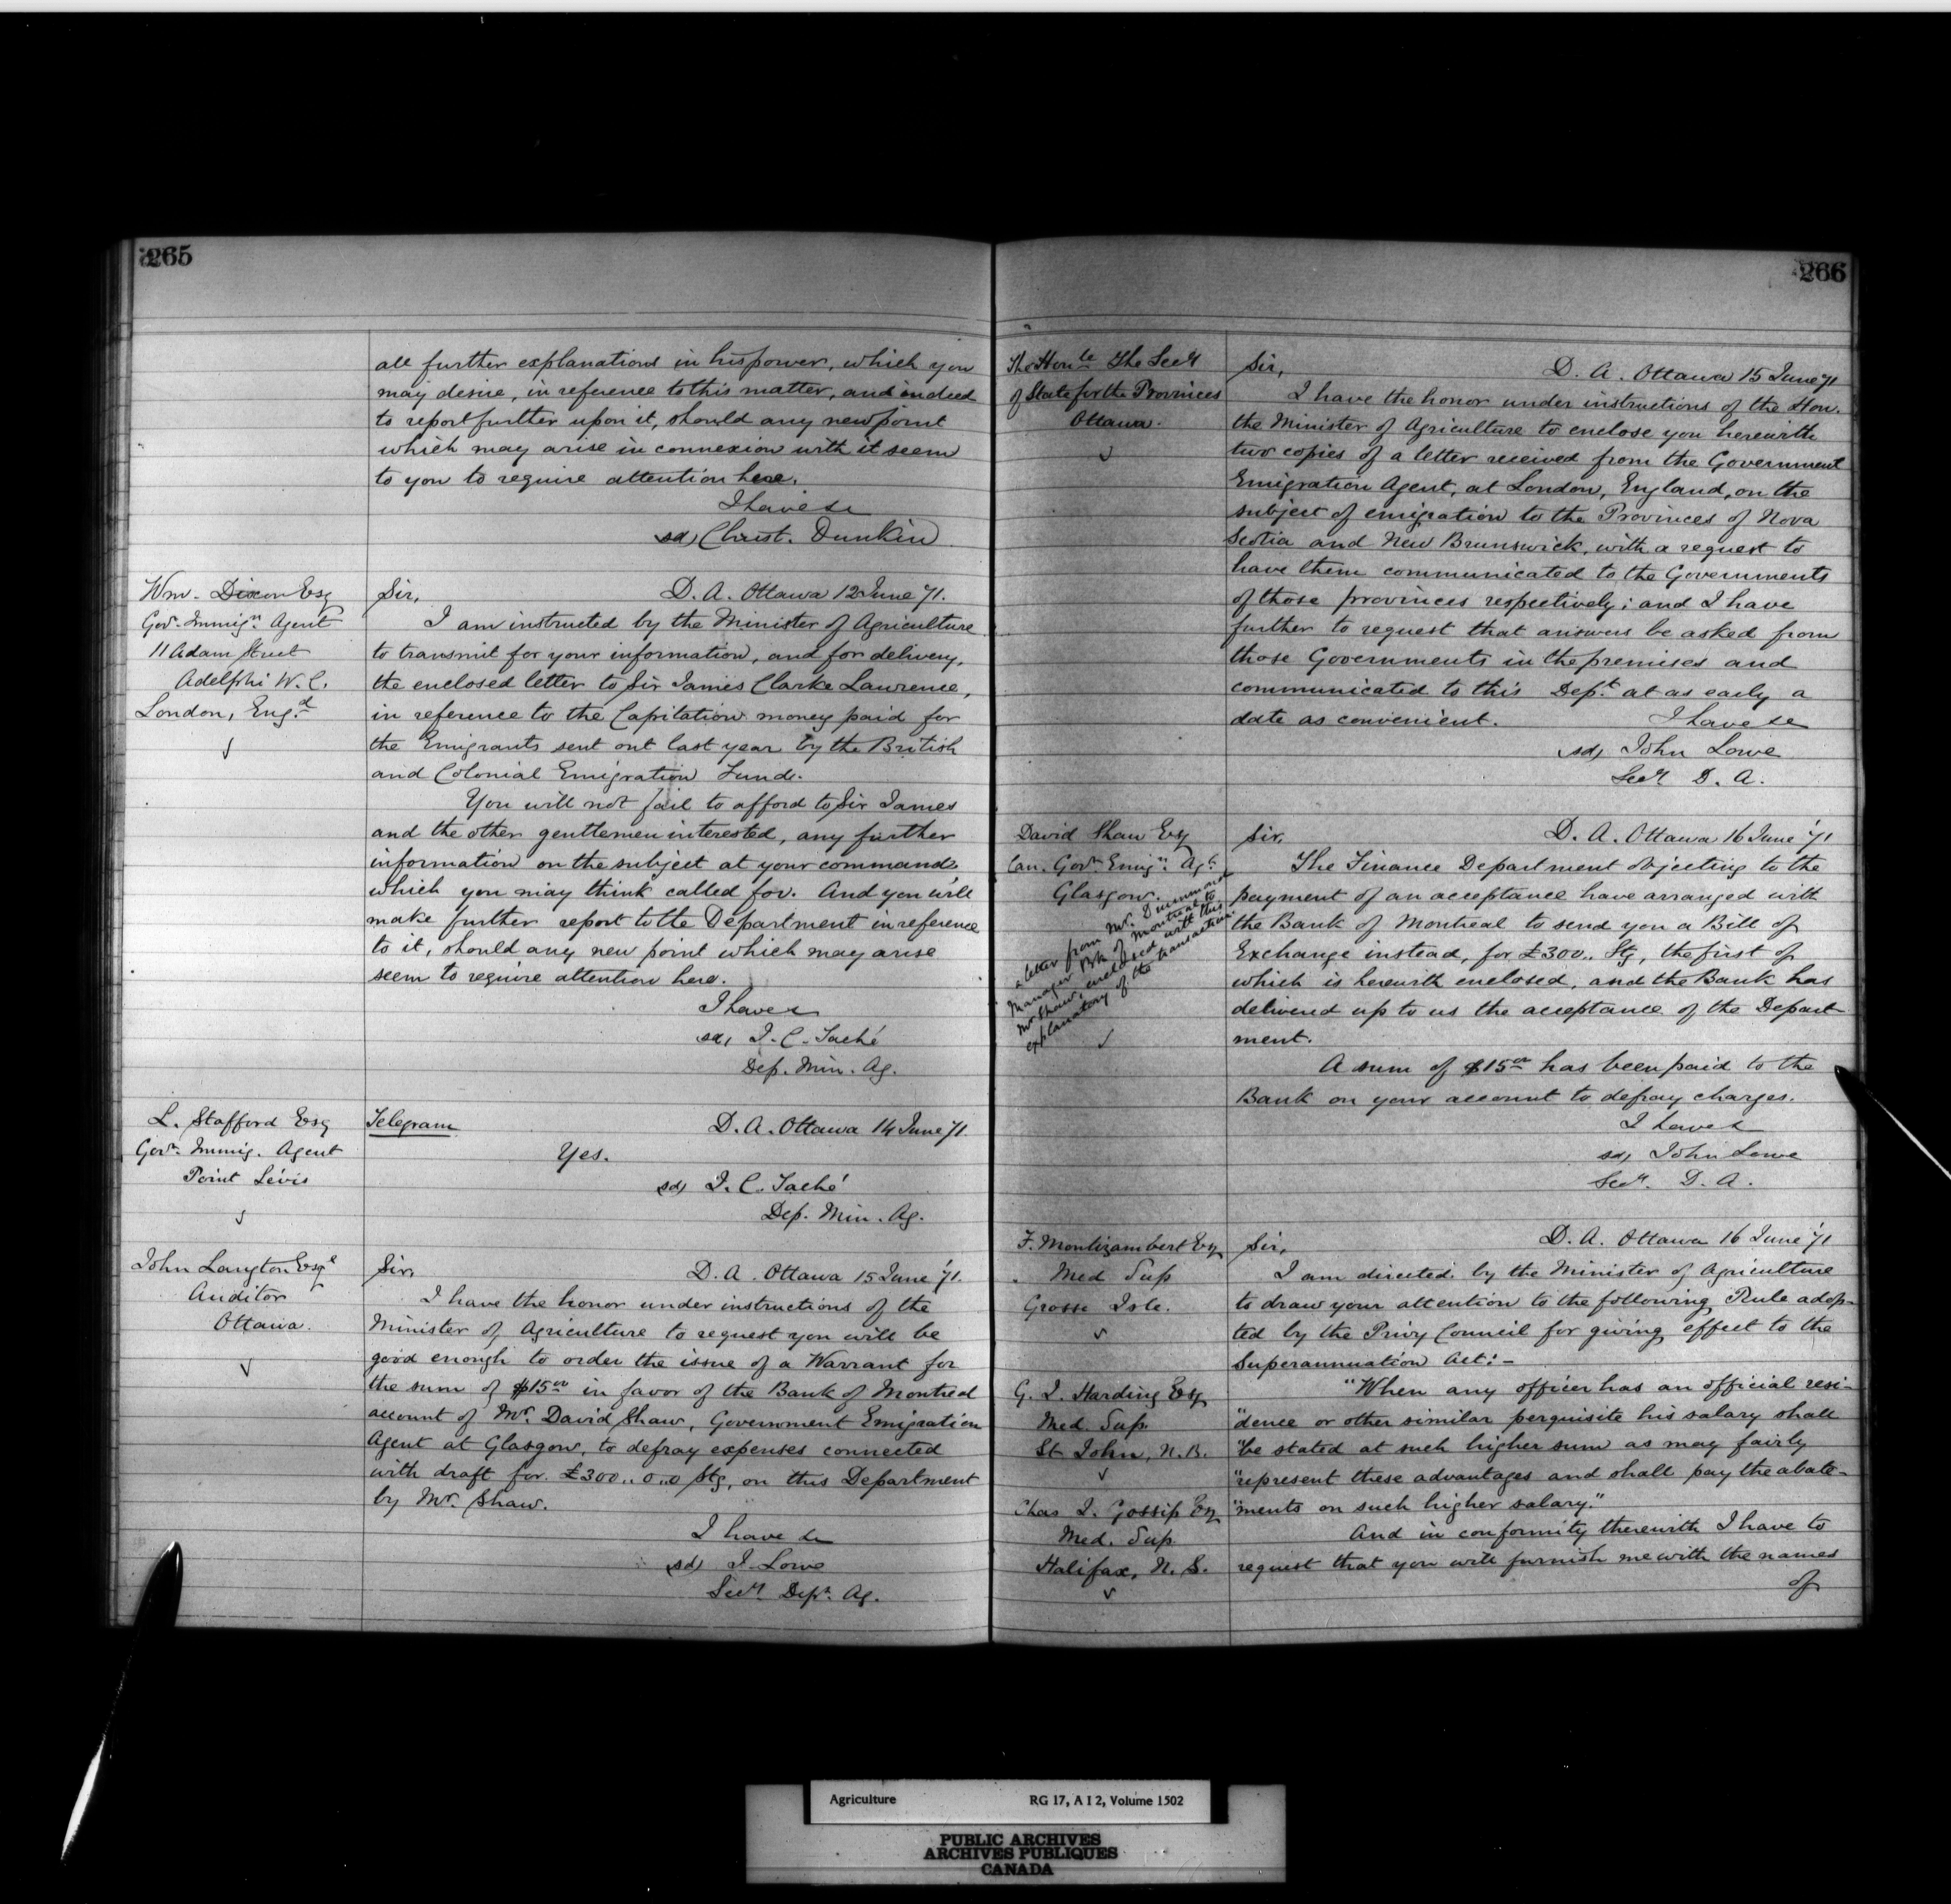 265
all further explanations in his power, which you
may desire, in reference to this matter, and indeed
to report further upon it, should any new point
which may arise in connexion with it seem
to you to require attention here.
I have &c
sd, Christ. Dunkin
Wm. Dixon Esq
Govt. Immign. Agent
11 Adam Street
Adelphi W.C.
London, Engd.
Sir, D. A. Ottawa 12 June '71.
I am instructed by the Minister of Agriculture
to transmit for your information, and for delivery,
the enclosed letter to Sir James Clarke Lawrence,
in reference to the Capitation money paid for
the Emigrants sent out last year by the British
and Colonial Emigration Fund.
You will not fail to afford to Sir James
and the other gentlemen interested, any further
information on the subject at your command,
which you may think called for. And you will
make further report to the Department in reference
to it, should any new point which may arise
seem to require attention here.
I have &
sd, J. C. Taché
Dep. Min. Ag.
L. Stafford Esq
Govt. Immig. Agent
Point Lévis
Telegram D. A. Ottawa 14 June 71
Yes.
sd, J. C. Taché
Dep. Min. Ag.
John Langton Esqe
Auditor
Ottawa.
Sir, D. A. Ottawa 15 June '71.
I have the honor under instructions of the
Minister of Agriculture to request you will be
good enough to order the issue of a Warrant for
the sum of $15.00 in favor of the Bank of Montreal
account of Mr. David Shaw, Government Emigration
Agent at Glasgow, to defray expenses connected
with draft for £300..0..0 Stg, on this Department
by Mr. Shaw.
I have &c
sd, J. Lowe
Secy. Dept. Ag.
266
The Honle. The Secy
of State for the Provinces
Ottawa.
Sir, D. A. Ottawa 15 June '71
I have the honor under instructions of the Hon.
the Minister of Agriculture to enclose you herewith
two copies of a letter received from the Government
Emigration Agent, at London, England, on the
subject of emigration to the Provinces of Nova
Scotia and New Brunswick, with a request to
have them communicated to the Governments
of those provinces respectively; and I have
further to request that answers be asked from
those Governments in the premises and
communicated to this Dept. at as early a
date as convenient. I have &c
sd, John Lowe
Secy D. A.
David Shaw Esq
Can. Govt. Emign. Agt.
Glasgow.
a letter from Mr. Drummond
Manager Bk of Montreal to
Mr Shaw, enclosed with this
explanatory of the transaction.
Sir, D. A. Ottawa 16 June '71
The Finance Department objecting to the
payment of an acceptance have arranged with
the Bank of Montreal to send you a Bill of
Exchange instead, for £300.. Stg, the first of
which is herewith enclosed, and the Bank has
delivered up to us the acceptance of the Depart-
ment.
A sum of $15.00 has been paid to the
Bank on your account to defray charges.
I have &
sd, John Lowe
Secy. D. A.
F. Montizambert Esq
Med Sup
Grosse Isle.
G. J. Harding Esq
Med. Sup.
St. John, N.B.
Chas J. Gossip Esq
Med. Sup.
Halifax, N. S.
Sir, D. A. Ottawa 16 June '71
I am directed by the Minister of Agriculture
to draw your attention to the following Rule adop-
ted by the Privy Council for giving effect to the
Superannuation Act:-
"When any officer has an official resi-
"dence or other similar perquisite his salary shall
"be stated at such higher sum as may fairly
"represent these advantages and shall pay the abate-
"ments on such higher salary."
And in conformity therewith I have to
request that you will furnish me with the names
of
Agriculture RG 17, A I 2, Volume 1502
PUBLIC ARCHIVES
ARCHIVES PUBLIQUES
CANADA